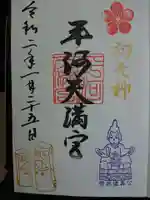 初天神
平河天満宮
令和二年一月二十五日